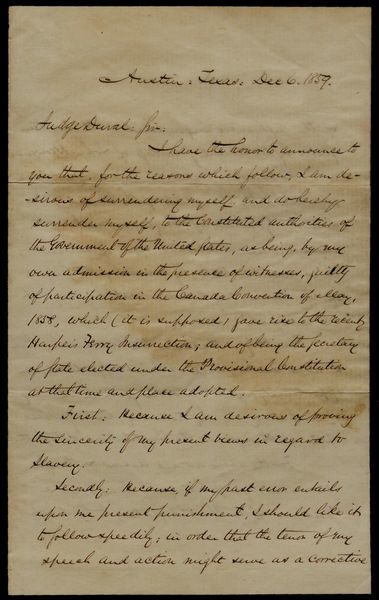 Austin: Texas: Dec 6. 1859.
Judge Duval: Sir:
I have the honor to announce to
you that, for the reasons which follow, I am de-
-sirous of surrendering myself, and do hereby
surrender myself, to the Constituted authorities of
the Government of the United States, as being, by my
own admission in the presence of witnesses, guilty
of participation in the Canada Convention of May,
1858, which (it is supposed) gave rise to the
Harper's Ferry Insurrection; and of being the Secretary
of State elected under the Provisional Constitution
at that time and place adopted.
First: Because I am desirous of proving
the sincerity of my present views in regard to
Slavery.
Secondly: Because, if my past error entails
upon me present punishment, I should like it
to follow speedily; in order that the tenor of my
speech and action might serve as a corrective